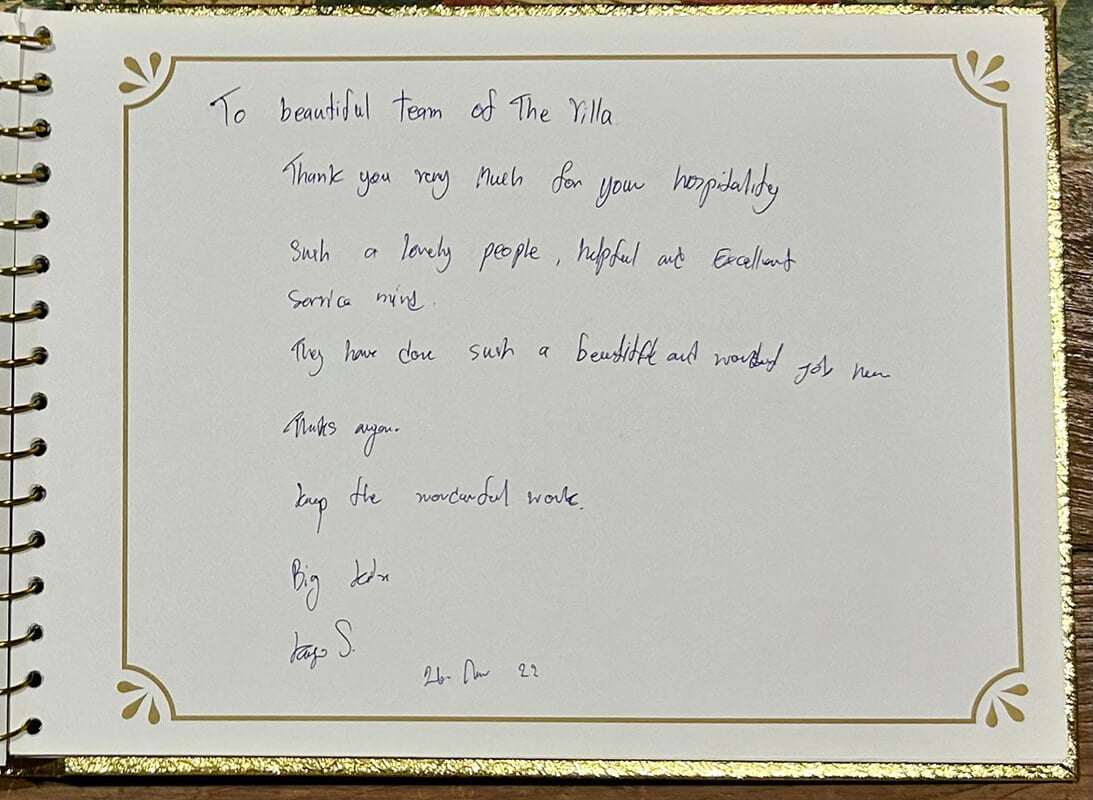 To beautiful team of The Villa.
Thank you very Much for your hospitality
Such a lovely people, helpful and Excellent
Service mind.
They have done such a beautiful and wonderful job here
keep the wonderful work.
Big
S.
26 Nov 22